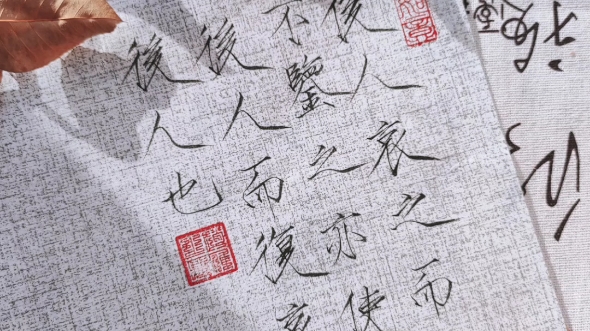 後人哀之而
不鑒之亦使
後人而復哀
後人也